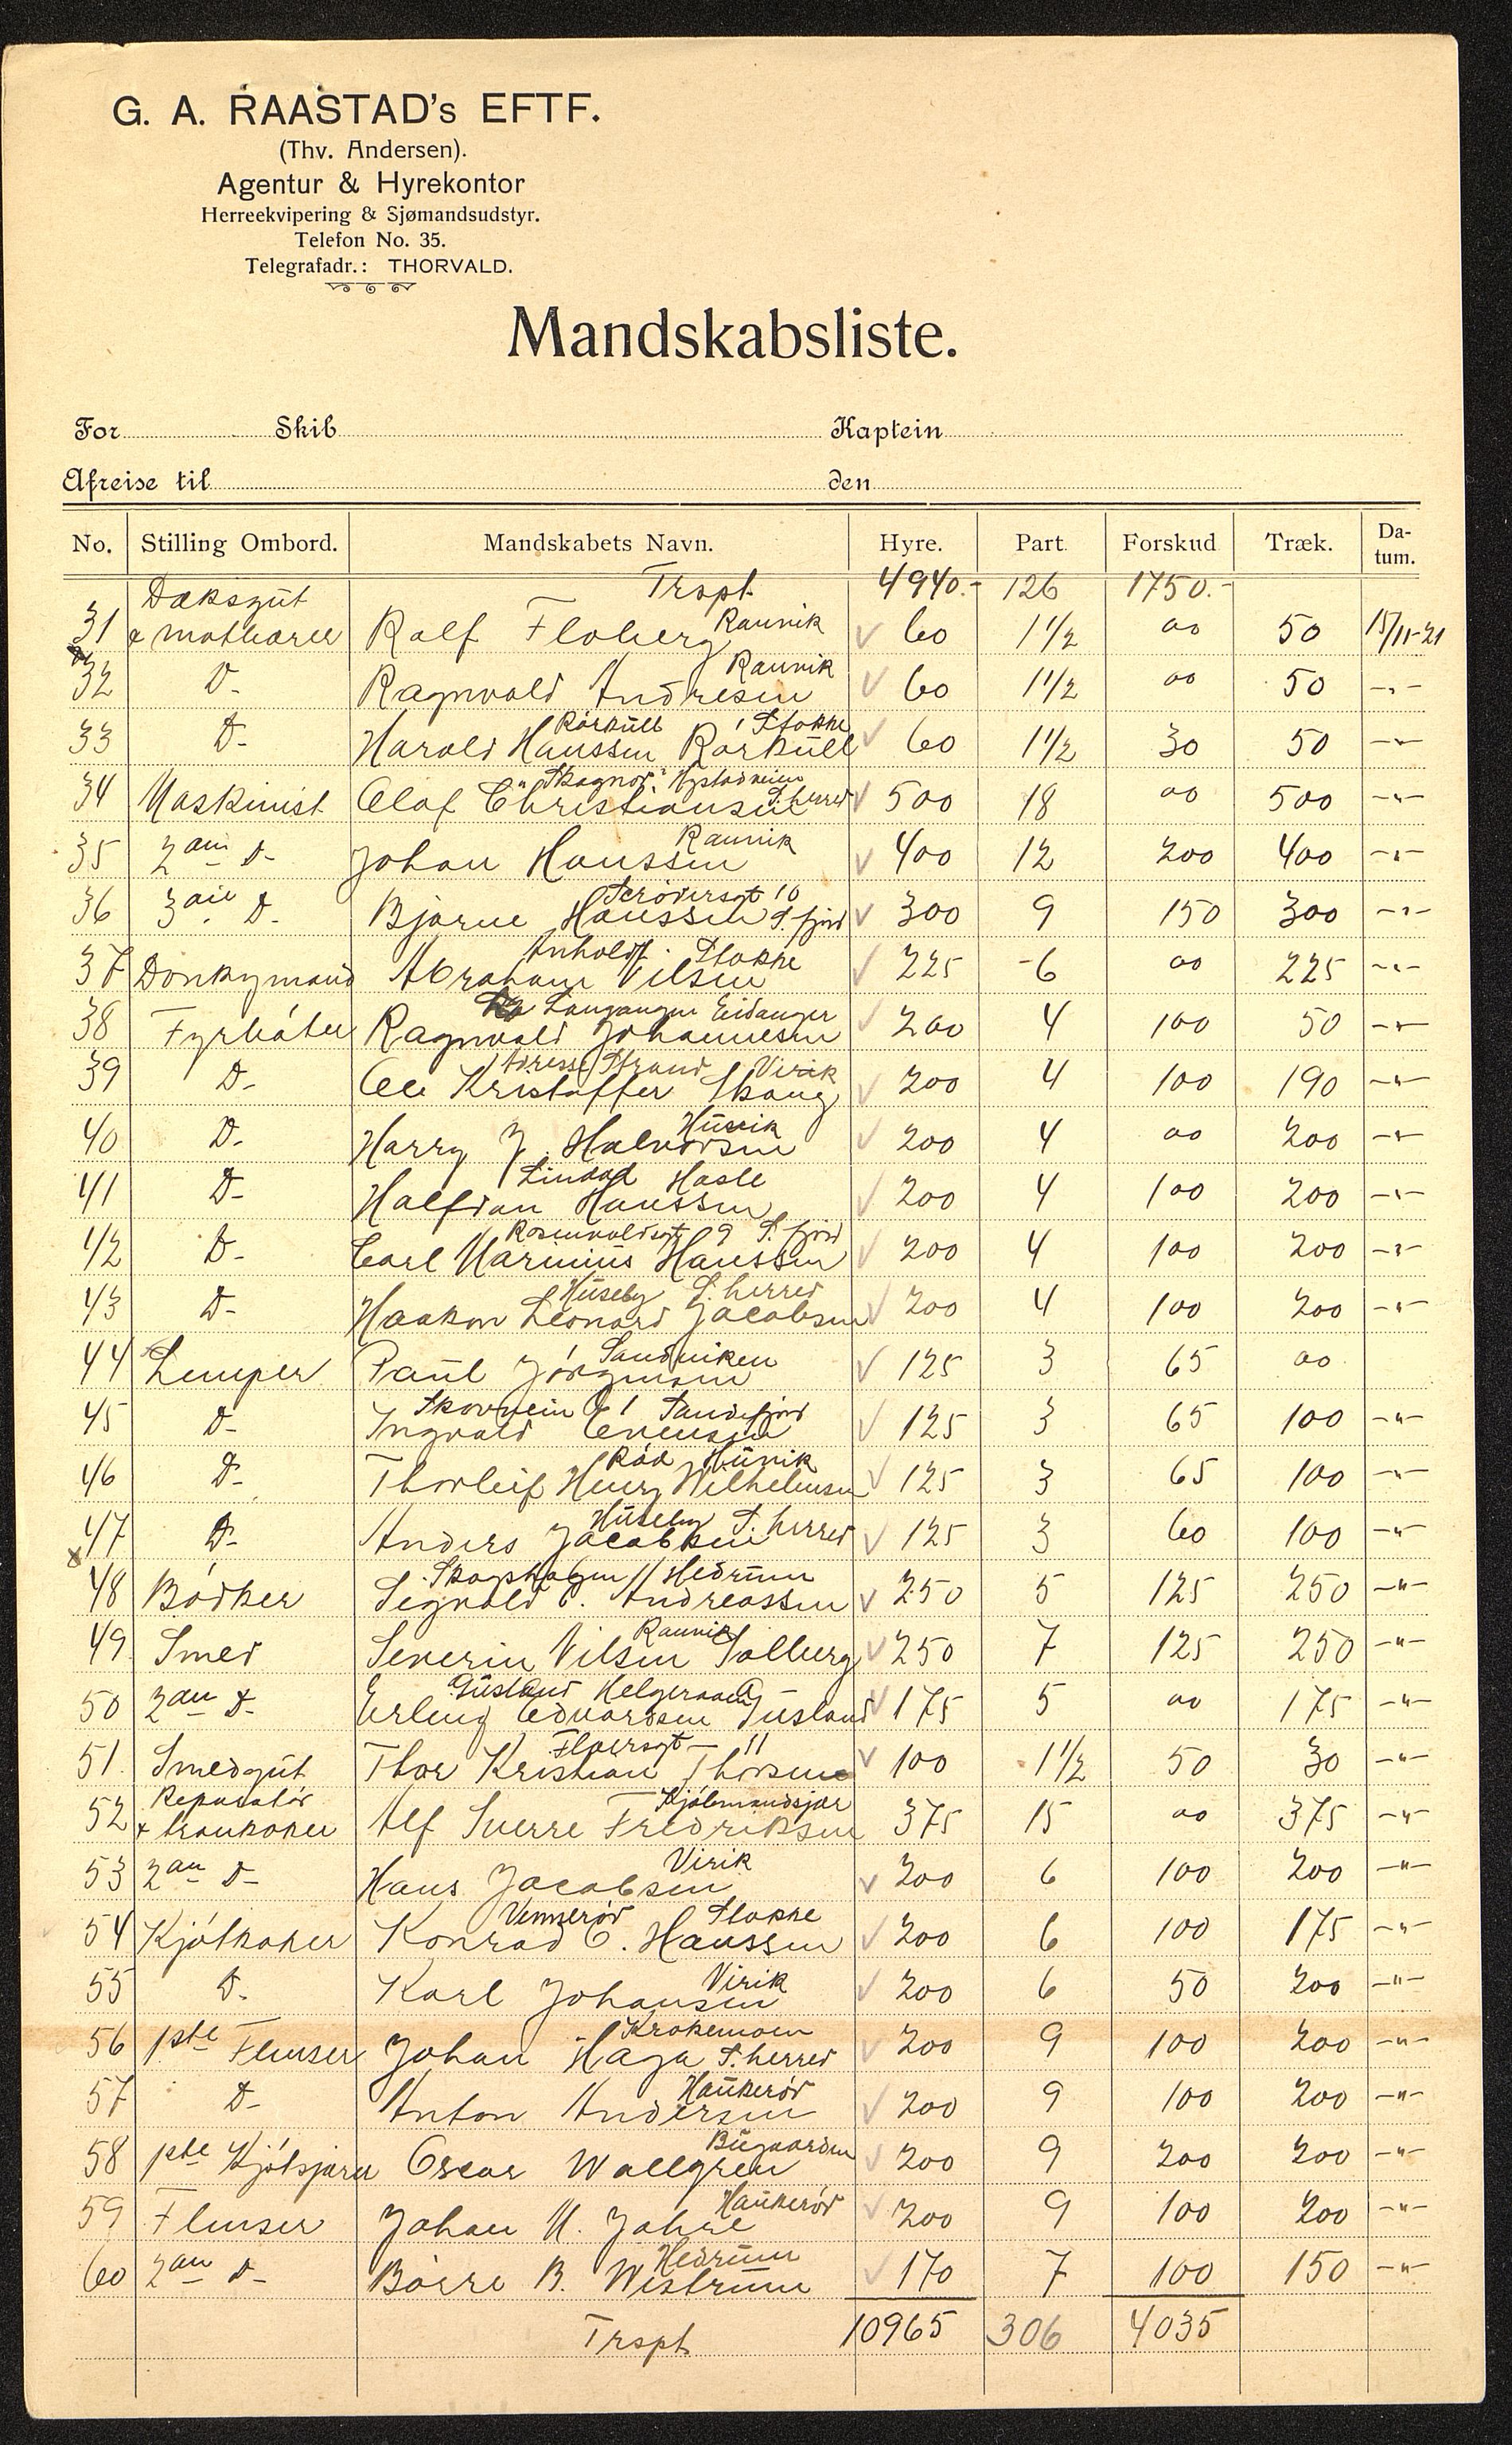 G. A. RAASTAD's EFTF.
(Thv. Andersen).
Agentur & Hyrekontor
Herreekvipering & Sjømandsudstyr.
Telefon No. 35.
Telegrafadr.: THORVALD.
Mandskabsliste.
For Skib Kaptein
Afreise til den
No. Stilling Ombord. Mandskabets Navn. Hyre. Part. Forskud Træk. Da-tum.
Trspt. 4940.- 126 1750.-
Dæksgut
Raunik
31 Ralf Floberg 60 1 1/2 00 50 15/11-21
Raunik
32 D- Ragnvald Andresen 60 1 1/2 00 50 -"-
Rørkull Stokke
33 D- Harald Hanssen Rørkull 60 1 1/2 30 50 -"-
34 Maskinist Olaf Christiansen S.herred 500 18 00 500 -"-
Raunik
35 2den D- Johan Hanssen 400 12 200 400 -"-
10
36 3die D- Bjarne Hanssen S.fjord 300 9 150 300 -"-
Anholdt. Stokke
37 Donkymand Abraham Nilsen 225 6 00 225 -"-
Langangen Eidanger
38 Fyrbøter Ragnvald Johannesen 200 4 100 50 -"-
Adresse Strand Virik
39 D- Ole Kristoffer Skaug 200 4 100 190 -"-
Husvik
40 D- Harry J. Halvorsen 200 4 00 200 -"-
Hasle
41 D- Halfdan Hanssen 200 4 100 200 -"-
Rosenvoldsgt 9 S.fjord
42 D- Carl Marinius Hanssen 200 4 100 200 -"-
Huseby S.herred
43 D- Haakon Leonard Jacobsen 200 4 100 200 -"-
Sandviken
44 Lemper Paul Jørgensen 125 3 65 00
Skovvein 61 Sandefjord
45 D- Ingvald Evensen 125 3 65 100 -"-
Rød Husvik
46 D- Thorleif Henry Wilhelmsen 125 3 65 100 -"-
Huseby S.herred
x 47 D- Anders Jacobsen 125 3 60 100 -"-
Hedrum
48 Bødker Sigvald C. Andreassen 250 5 125 250 -"-
Raunik
49 Smed Severin Nilsen Solberg 250 7 125 250 -"-
50 2den D- Erling Edvardsen 175 5 00 175 -"-
11
51. Smedgut Thor Kristian Thorsen 100 1 1/2 50 30 -"-
Reparatør
52 & trankoker Alf Sverre Fredriksen 375 15 00 375 -"-
Virik
53 2den D- Hans Jacobsen 200 6 100 200 -"-
Vennerød Stokke
54 Kjøtkoker Konrad O. Hanssen 200 6 100 175 -"-
Virik
55 D- Karl Johansen 200 6 50 200 -"-
Krokemoen
56 1ste Flenser Johan Haga S.herred 200 9 100 200 -"-
Haukerød
57 D- Anton Andersen 200 9 100 200 -"-
Bugaarden
58 1ste Kjøtsjærer Oscar Wallgren 200 9 200 200 -"-
Haukerød
59 Flenser Johan M. Jahre 200 9 100 200 -"-
Hedrum
60 2den D- Børre B. Wistrum 170 7 100 150 -"-
Trspt. 10965 306 4035